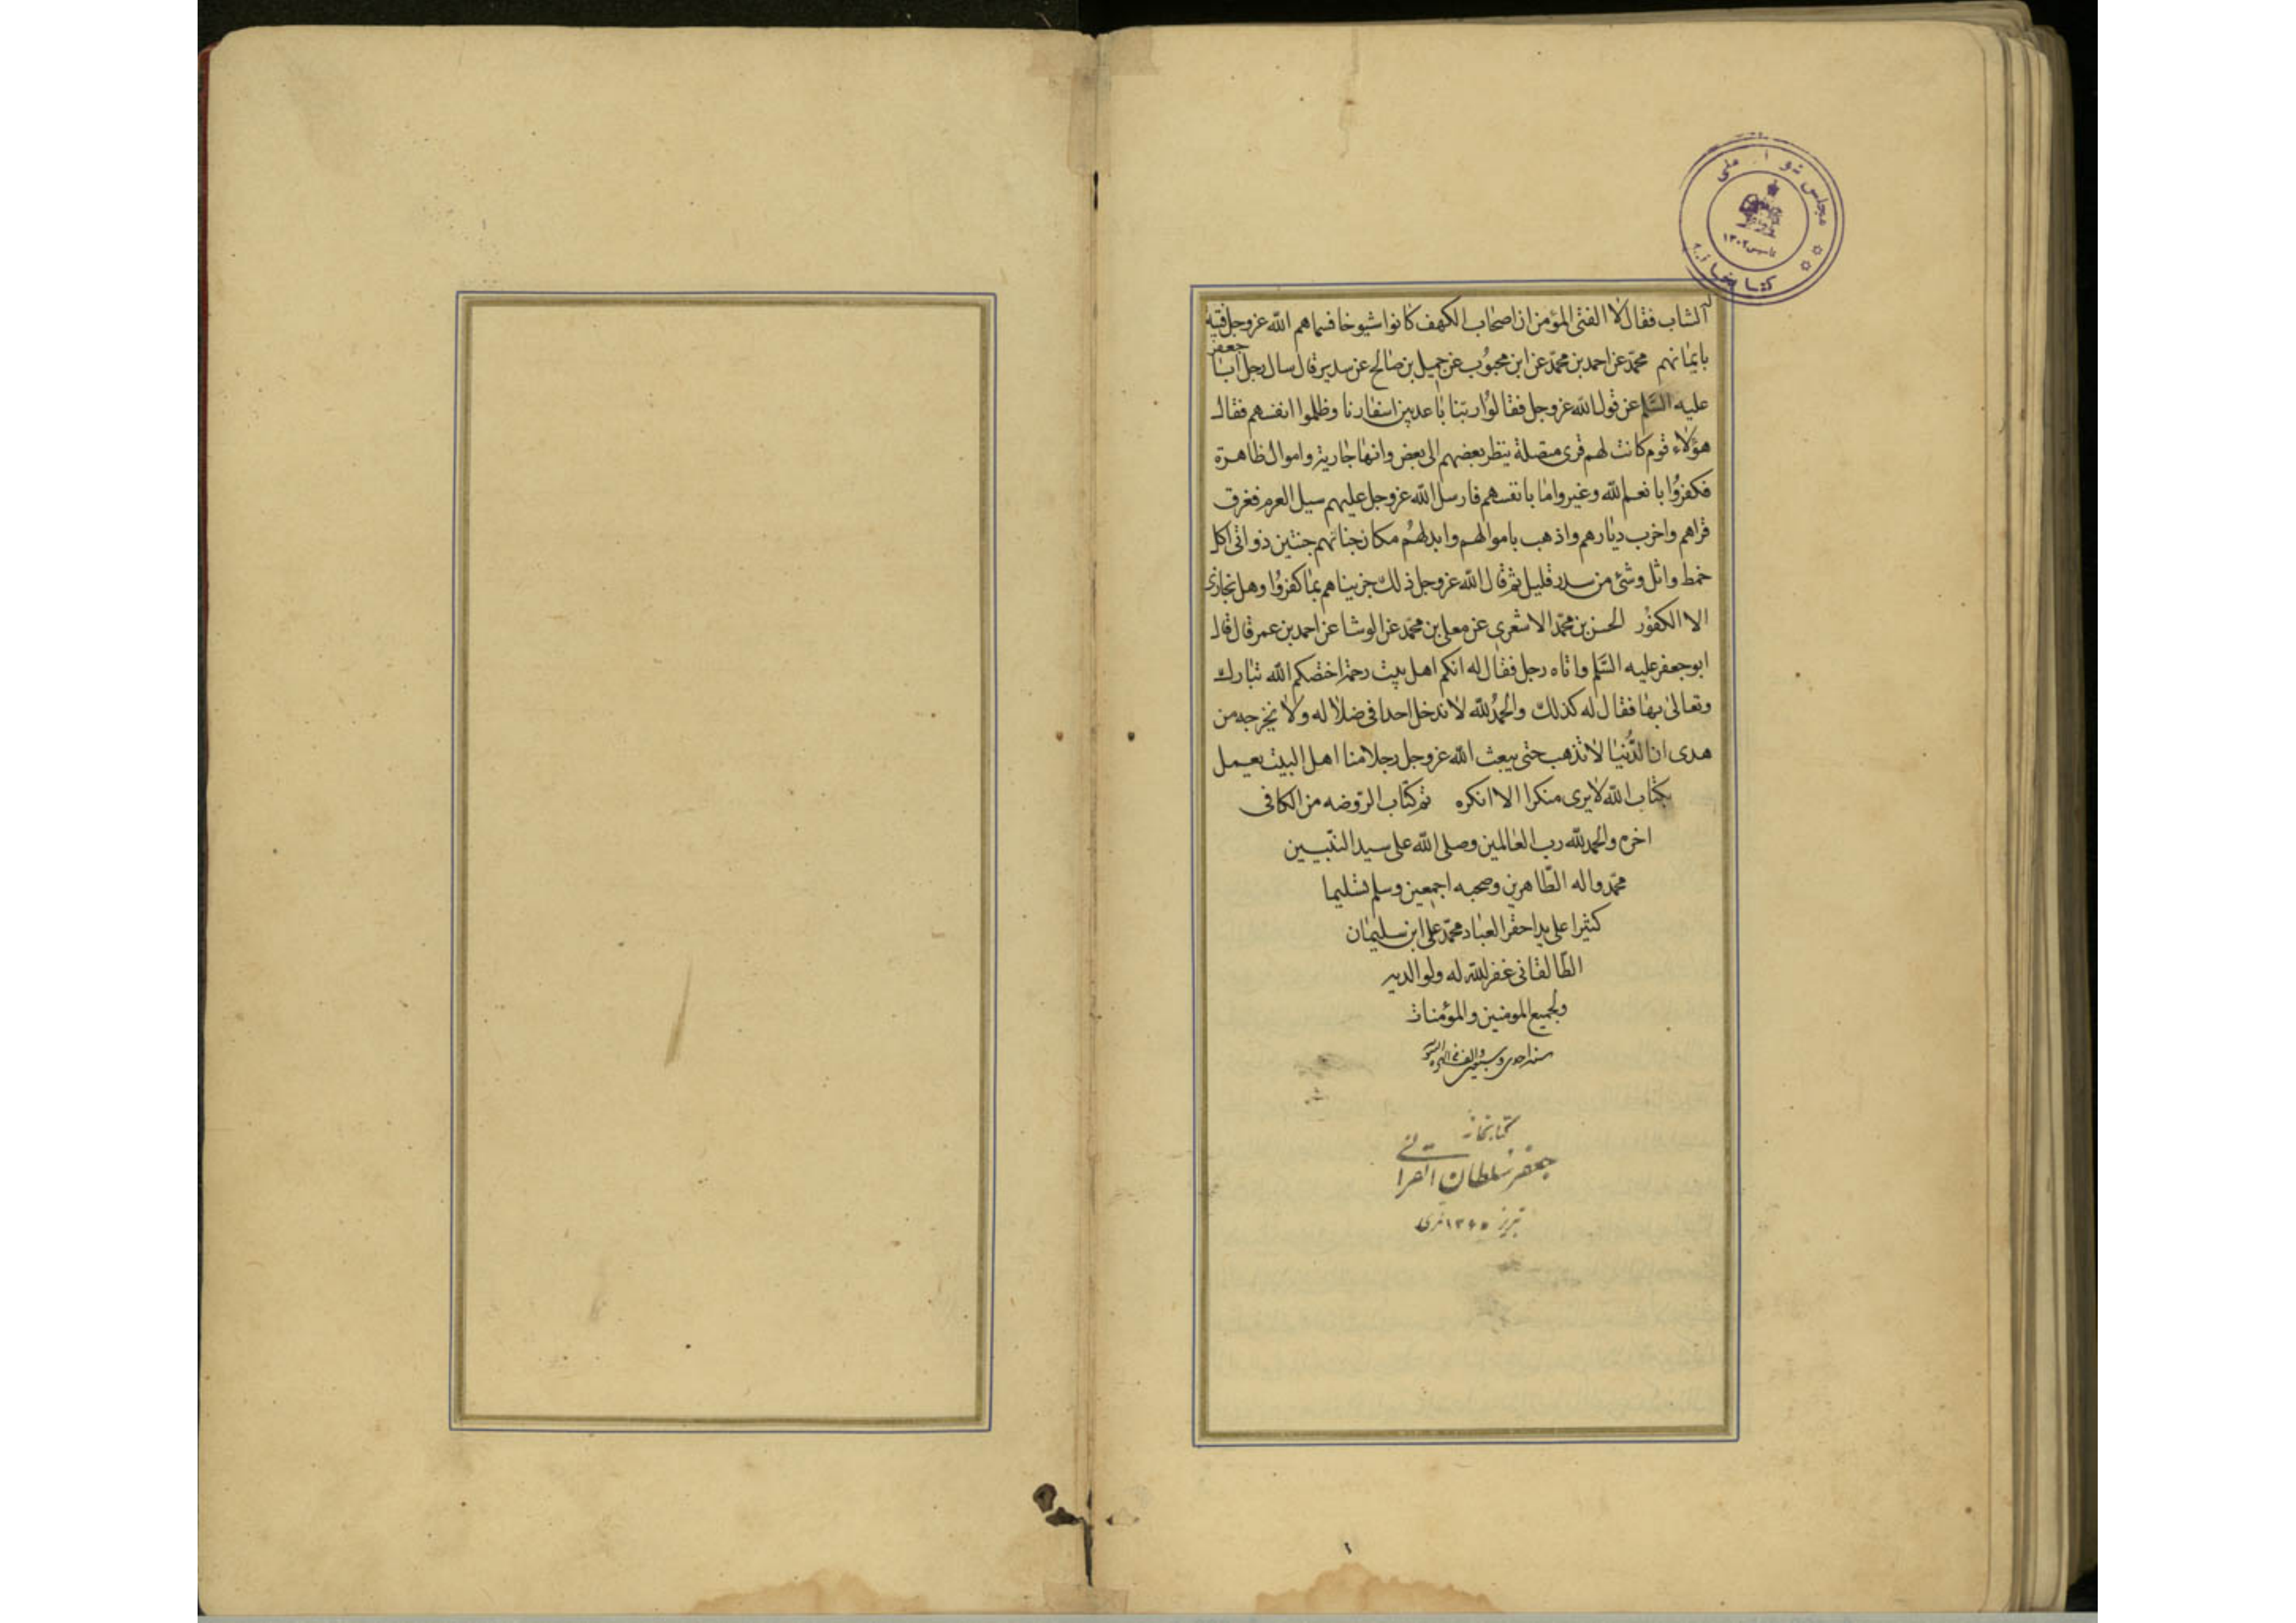 مجلس شو ا ملی
تاسیس ۱۳۰۲
کتابخانه
الشاب فقال لا الفتى المؤمن ان اصحاب الكهف كانوا شيوخا فسماهم الله عزوجل فتية
بايمانهم محمد عن احمد بن محمد عن ابن محبوب عن جميل بن صالح عن سدير قال سال رجل ابا جعفر
عليه السلم عن قول الله عزوجل فقالوا ربنا باعد بين اسفارنا وظلموا انفسهم فقال
هؤلاء قوم كانت لهم قرى متصلة ينظر بعضهم الى بعض وانهار جارية واموال ظاهرة
فكفروا بانعم الله وغيروا ما بانفسهم فارسل الله عزوجل عليهم سيل العرم فغرق
قراهم واخرب ديارهم واذهب باموالهم وابدلهم مكان جناتهم جنتين ذواتى اكل
خمط واثل وشئ من سدر قليل ثم قال الله عزوجل ذلك جزيناهم بما كفروا وهل نجازى
الا الكفور الحسن بن محمد الاشعرى عن معلى بن محمد عن الوشا عن احمد بن عمر قال قال
ابو جعفر عليه السلم واتاه رجل فقال له انكم اهل بيت رحمة اختصكم الله تبارك
وتعالى بها فقال له كذلك والحمد لله لا ندخل احدا فى ضلاله ولا نخرجه من
هدى ان الدنيا لا تذهب حتى يبعث الله عزوجل رجلا منا اهل البيت يعمل
بكتاب الله لا يرى منكرا الا انكره تم كتاب الروضه من الكافى
اخره والحمد لله رب العالمين وصلى الله على سيد النبيين
محمد واله الطاهرين وصحبه اجمعين وسلم تسليما
كثيرا على يد احقر العباد محمد على ابن سليمان
الطالقانى غفر الله له ولوالديه
ولجميع المومنين والمؤمنات
سنه احدى وسبعين والف
کتابخانه
جعفر سلطان القرائی
تبریز ۱۳۶۵ قمری